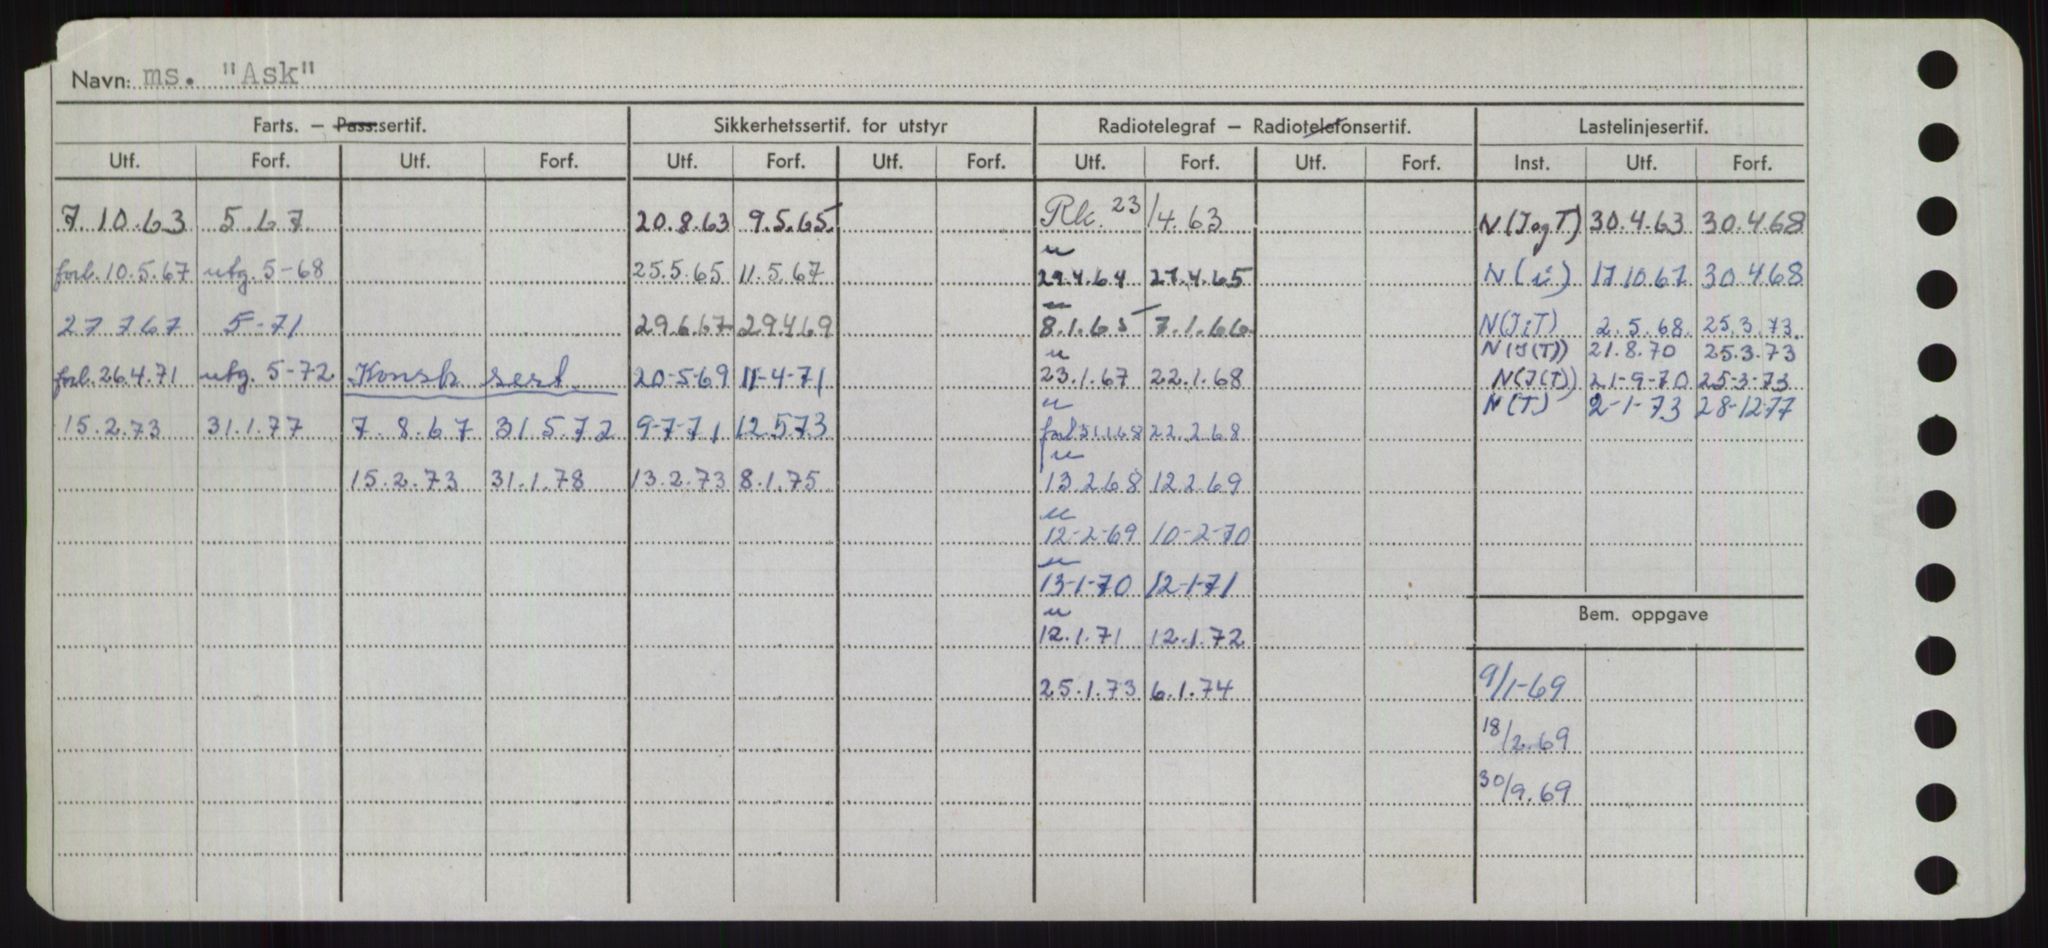 Navn: ms. "Ask"
Farts. – Pass.sertif. Sikkerhetssertif. for utstyr Radiotelegraf – Radiotelefonsertif. Lastelinjesertif.
Utf. Forf. Utf. Forf. Utf. Forf. Utf. Forf. Utf. Forf. Utf. Forf. Inst. Utf. Forf.
7.10.63 5.67 20.8.63 9.5.65 Rk. 23/4.63 N(JogT) 30.4.63 30.4.68
"
forl. 10.5.67 utg. 5-68 25.5.65 11.5.67 29.4.64 27.4.65 N(i) 17.10.67 30.4.68
"
27.7.67 5-71 29.6.67 29.4.69 8.1.65 7.1.66 N(JiT) 2.5.68 25.3.73
" N(J(T)) 21.8.70 25.3.73
forl. 26.4.71 utg. 5-72 Konstr sert. 20-5-69 11-4-71 23.1.67 22.1.68 N(J(T)) 21-9-70 25-3-73
" N(T) 2-1-73 28-12-77
15.2.73 31.1.77 7.8.67 31.5.72 9-7-71 12.5.73 forl 31.1.68 22.2.68
"
15.2.73 31.1.78 13.2.73 8.1.75 13.2.68 12.2.69
"
12-2-69 10-2-70
"
13-1-70 12-1-71
"
12.1.71 12.1.72
25.1.73 6.1.74
Bem. oppgave
9/1-69
18/2.69
30/9.69